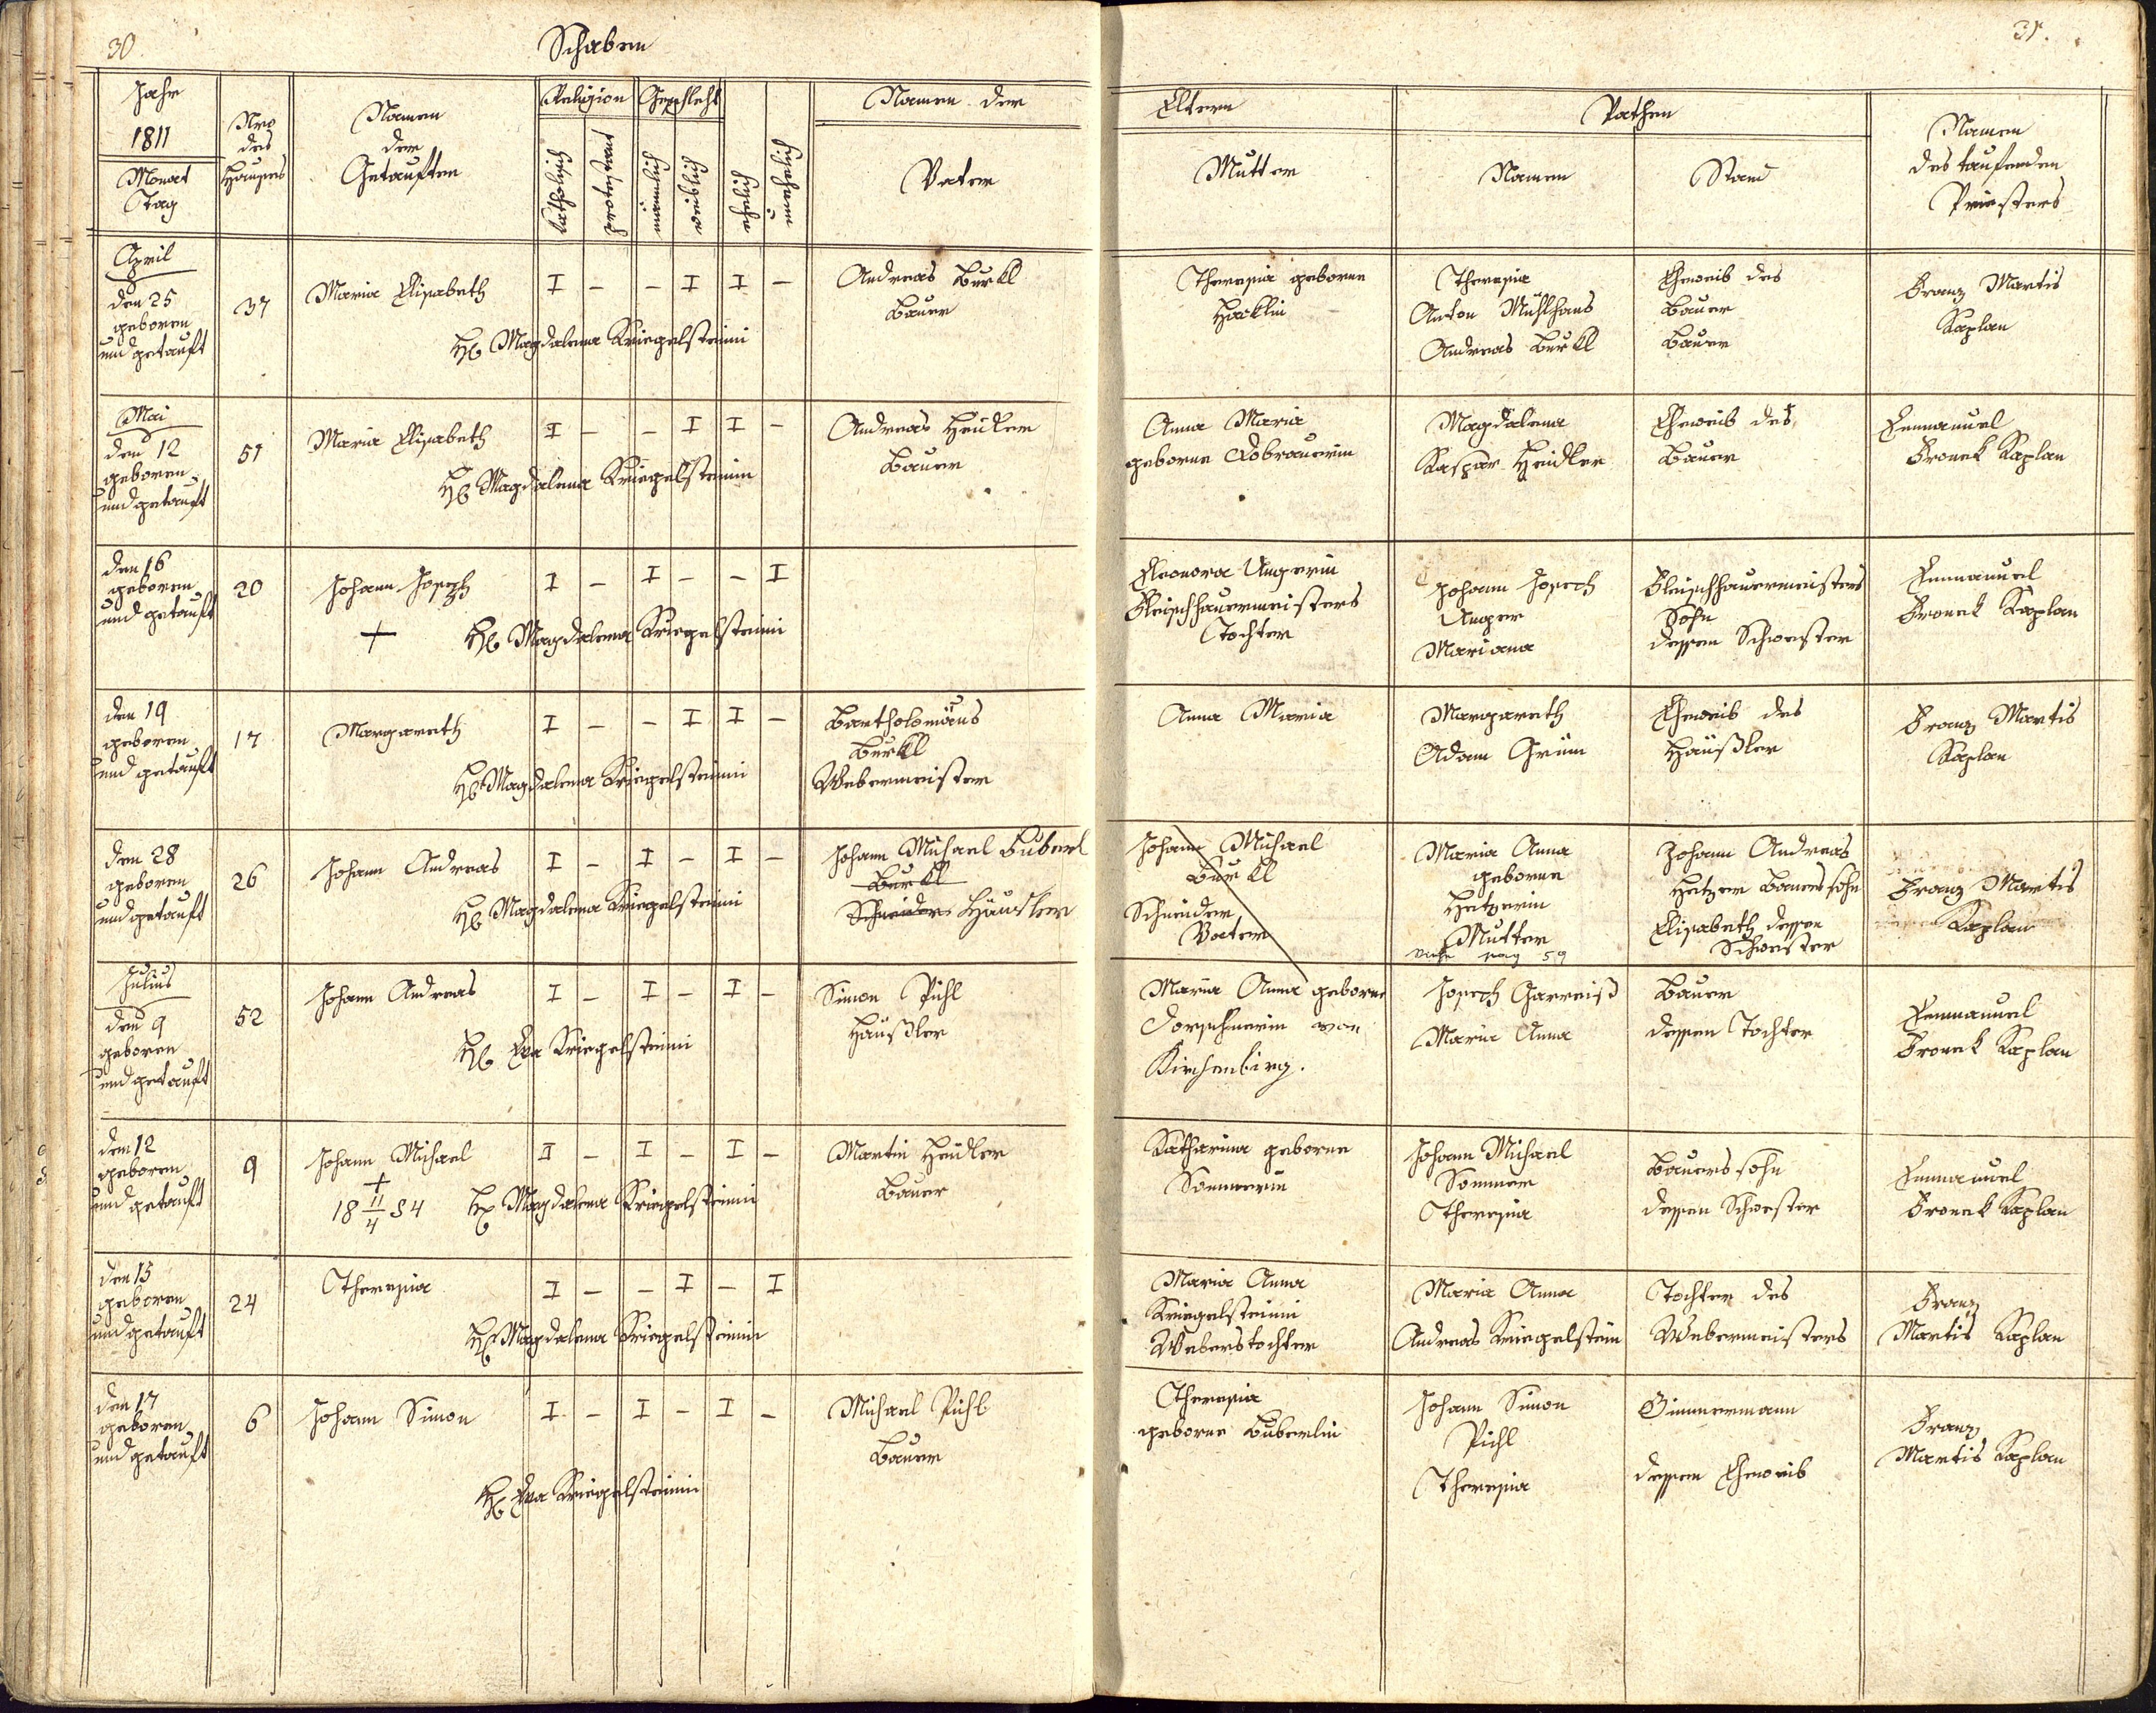 30.
Schaben
Jahr
1811
Monat
Tag
Nro
des
Hauses
Namen
der
Getauften
Religion
katholisch
protestant
Geschlecht
männlich
weiblich
ehelich
unehelich
Namen der
Vater
April
den 25
geboren
und getauft
37
Maria Elisabeth
I - - I I -
Hb Magdalena Kriegelsteinin
Andreas Burkl
Bauer
Mai
den 12
geboren
und getauft
51
Maria Elisabeth
I - - I I -
Hb Magdalena Kriegelsteinin
Andreas Heidler
Bauer
den 16
geboren
und getauft
20
Johann Joseph
+
I - I - - I
Hb Magdalena Kriegelsteinin
den 19
geboren
und getauft
17
Margareth
I - - I I -
Hb Magdalena Kriegelsteinin
Bartholomäus
Burkl
Webermeister
den 28
geboren
und getauft
26
Johann Andreas
I - I - I -
Hb Magdalena Kriegelsteinin
Johann Michael Buberl
Burkl
Schneider Häusler
Julius
den 9
geboren
und getauft
52
Johann Andreas
I - I - I -
Hb Eva Kriegelsteinin
Simon Pichl
Häußler
den 12
geboren
und getauft
9
Johann Michael
+
18 11/4 84
I - I - I -
Hb Magdalena Kriegelsteinin
Martin Heidler
Bauer
den 15
geboren
und getauft
24
Theresia
I - - I - I
Hb Magdalena Kriegelsteinin
den 17
geboren
und getauft
6
Johann Simon
I - I - I -
Hb Eva Kriegelsteinin
Michael Pichl
Bauer
31.
Eltern
Mutter
Pathen
Namen
Stand
Namen
des taufenden
Priesters
Theresia geborne
Hacklin
Theresia
Anton Mühlhans
Andreas Burkl
Eheweib des
Bauer
Bauer
Franz Martis
Kaplan
Anna Maria
geborne Lobrauerin
Magdalena
Kaspar Heidler
Eheweib des
Bauer
Emmanuel
Bronek Kaplan
Eleonora Ungerin
Fleischhauermeisters
Tochter
Johann Joseph
Unger
Mariana
Fleischhauermeisters
Sohn
dessen Schwester
Emmanuel
Bronek Kaplan
Anna Maria
Margareth
Adam Grüm
Eheweib des
Häußler
Franz Martis
Kaplan
Johann Michael
Burkl
Schneider
Vater
Maria Anna
geborne
Hetzerin
Mutter
vide pag 59
Johann Andreas
Hetzer Bauerssohn
Elisabeth dessen
Schwester
Franz Martis
Kaplan
Maria Anna geborne
Dorschnerin von
Kirchenbirg.
Joseph Garreiß
Maria Anna
Bauer
dessen Tochter
Emmanuel
Bronek Kaplan
Katharina geborne
Sommerin
Johann Michael
Sommer
Theresia
Bauerssohn
dessen Schwester
Emmanuel
Bronek Kaplan
Maria Anna
Kriegelsteinin
Weberstochter
Maria Anna
Andreas Kriegelstein
Tochter des
Webermeisters
Franz
Martis Kaplan
Theresia
geborne Buberlin
Johann Simon
Pichl
Theresia
Zimmermann
dessen Eheweib
Franz
Martis Kaplan